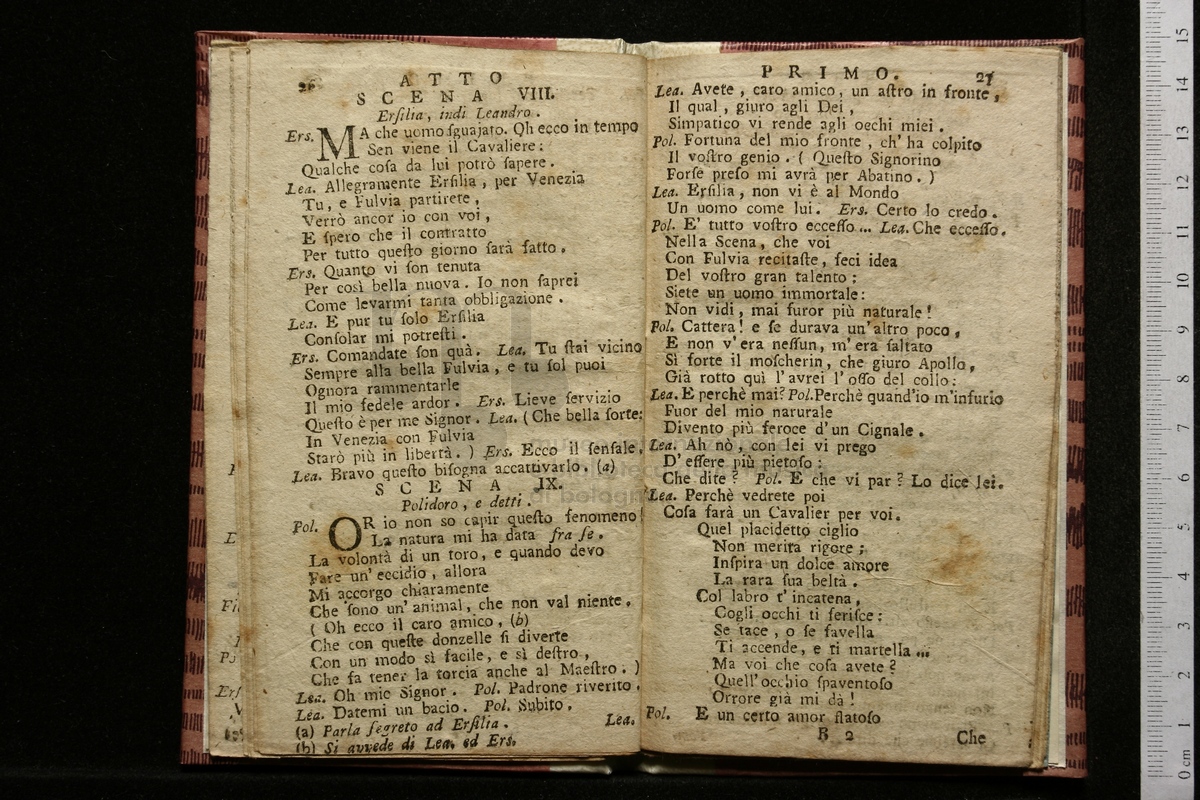 26
ATTO
SCENA VIII.
Erſilia, indi Leandro.
Ers. MA che uomo ſguajato. Oh ecco in tempo
Sen viene il Cavaliere:
Qualche coſa da lui potrò ſapere.
Lea. Allegramente Erſilia, per Venezia
Tu, e Fulvia partirete,
Verrò ancor io con voi,
E ſpero che il contratto
Per tutto queſto giorno ſarà fatto.
Ers. Quanto vi ſon tenuta
Per così bella nuova. Io non ſaprei
Come levarmi tanta obbligazione.
Lea. E pur tu ſolo Erſilia
Conſolar mi potreſti.
Ers. Comandate ſon quà. Lea. Tu ſtai vicino
Sempre alla bella Fulvia, e tu ſol puoi
Ognora rammentarle
Il mio fedele ardor. Ers. Lieve ſervizio
Queſto è per me Signor. Lea. (Che bella ſorte:
In Venezia con Fulvia
Starò più in libertà.) Ers. Ecco il ſenſale,
Lea. Bravo queſto biſogna accattivarlo. (a)
SCENA IX.
Polidoro, e detti.
Pol. OR io non so capir queſto fenomeno!
La natura mi ha data fra ſe.
La volontà di un toro, e quando devo
Fare un' eccidio, allora
Mi accorgo chiaramente
Che ſono un' animal, che non val niente,
( Oh ecco il caro amico, (b)
Che con queſte donzelle ſi diverte
Con un modo sì facile, e sì deſtro,
Che fa tener la torcia anche al Maeſtro. )
Lea. Oh mio Signor. Pol. Padrone riverito.
Lea. Datemi un bacio. Pol. Subito,
(a) Parla ſegreto ad Erſilia.
Lea.
(b) Si avvede di Lea. ed Ers.
PRIMO.
27
Lea. Avete, caro amico, un aſtro in fronte,
Il qual, giuro agli Dei,
Simpatico vi rende agli occhi miei.
Pol. Fortuna del mio fronte, ch' ha colpito
Il voſtro genio. ( Queſto Signorino
Forſe preſo mi avrà per Abatino. )
Lea. Erſilia, non vi è al Mondo
Un uomo come lui. Ers. Certo lo credo.
Pol. E' tutto voſtro ecceſſo... Lea. Che ecceſſo.
Nella Scena, che voi
Con Fulvia recitaſte, feci idea
Del voſtro gran talento;
Siete un uomo immortale:
Non vidi, mai furor più naturale!
Pol. Cattera! e ſe durava un' altro poco,
E non v' era neſſun, m' era ſaltato
Sì forte il moſcherin, che giuro Apollo,
Già rotto quì l' avrei l' oſſo del collo:
Lea. E perchè mai? Pol. Perchè quand'io m'infurio
Fuor del mio narurale
Divento più feroce d' un Cignale.
Lea. Ah nò, con lei vi prego
D' eſſere più pietoſo:
Che dite? Pol. E che vi par? Lo dice lei.
Lea. Perchè vedrete poi
Coſa farà un Cavalier per voi.
Quel placidetto ciglio
Non merita rigore;
Inſpira un dolce amore
La rara ſua beltà.
Col labro t' incatena,
Cogli occhi ti feriſce:
Se tace, o ſe favella
Ti accende, e ti martella ...
Ma voi che coſa avete?
Quell' occhio ſpaventoſo
Orrore già mi dà!
Pol. E un certo amor flatoſo
B 2
Che